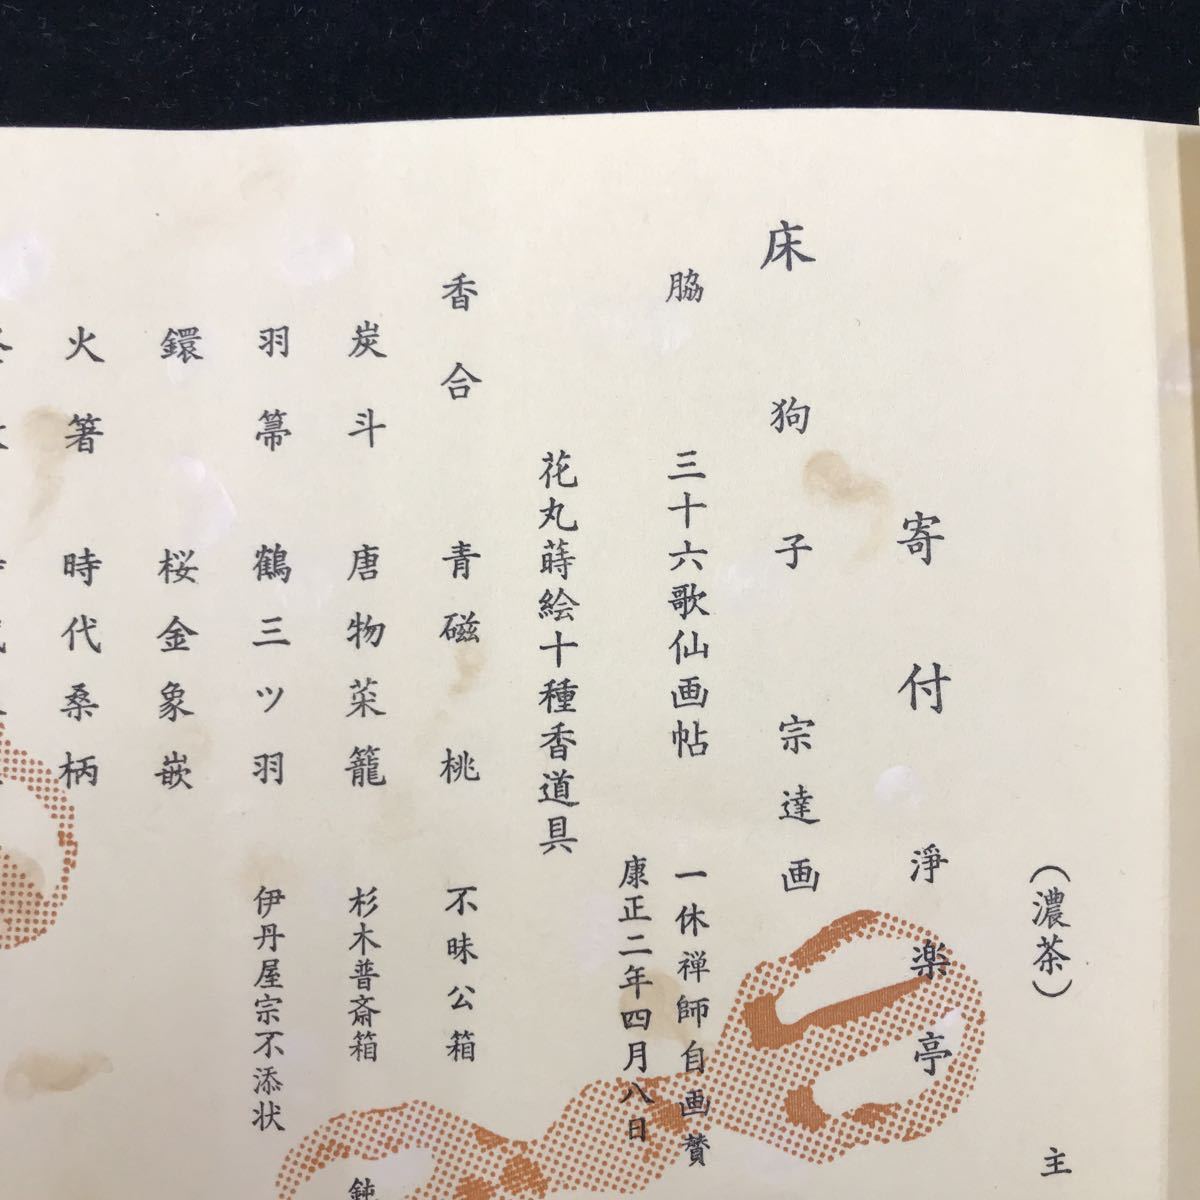 (濃茶)
主
寄付 淨楽亭
床 狗子 宗達画
脇 三十六歌仙画帖
一休禅師自画賛
康正二年四月八日
花丸蒔絵十種香道具
香合 青磁 桃 不昧公箱
炭斗 唐物菜籠 杉木普斎箱
羽箒 鶴三ツ羽 伊丹屋宗不添状
鐶 桜金象嵌
火箸 時代桑柄